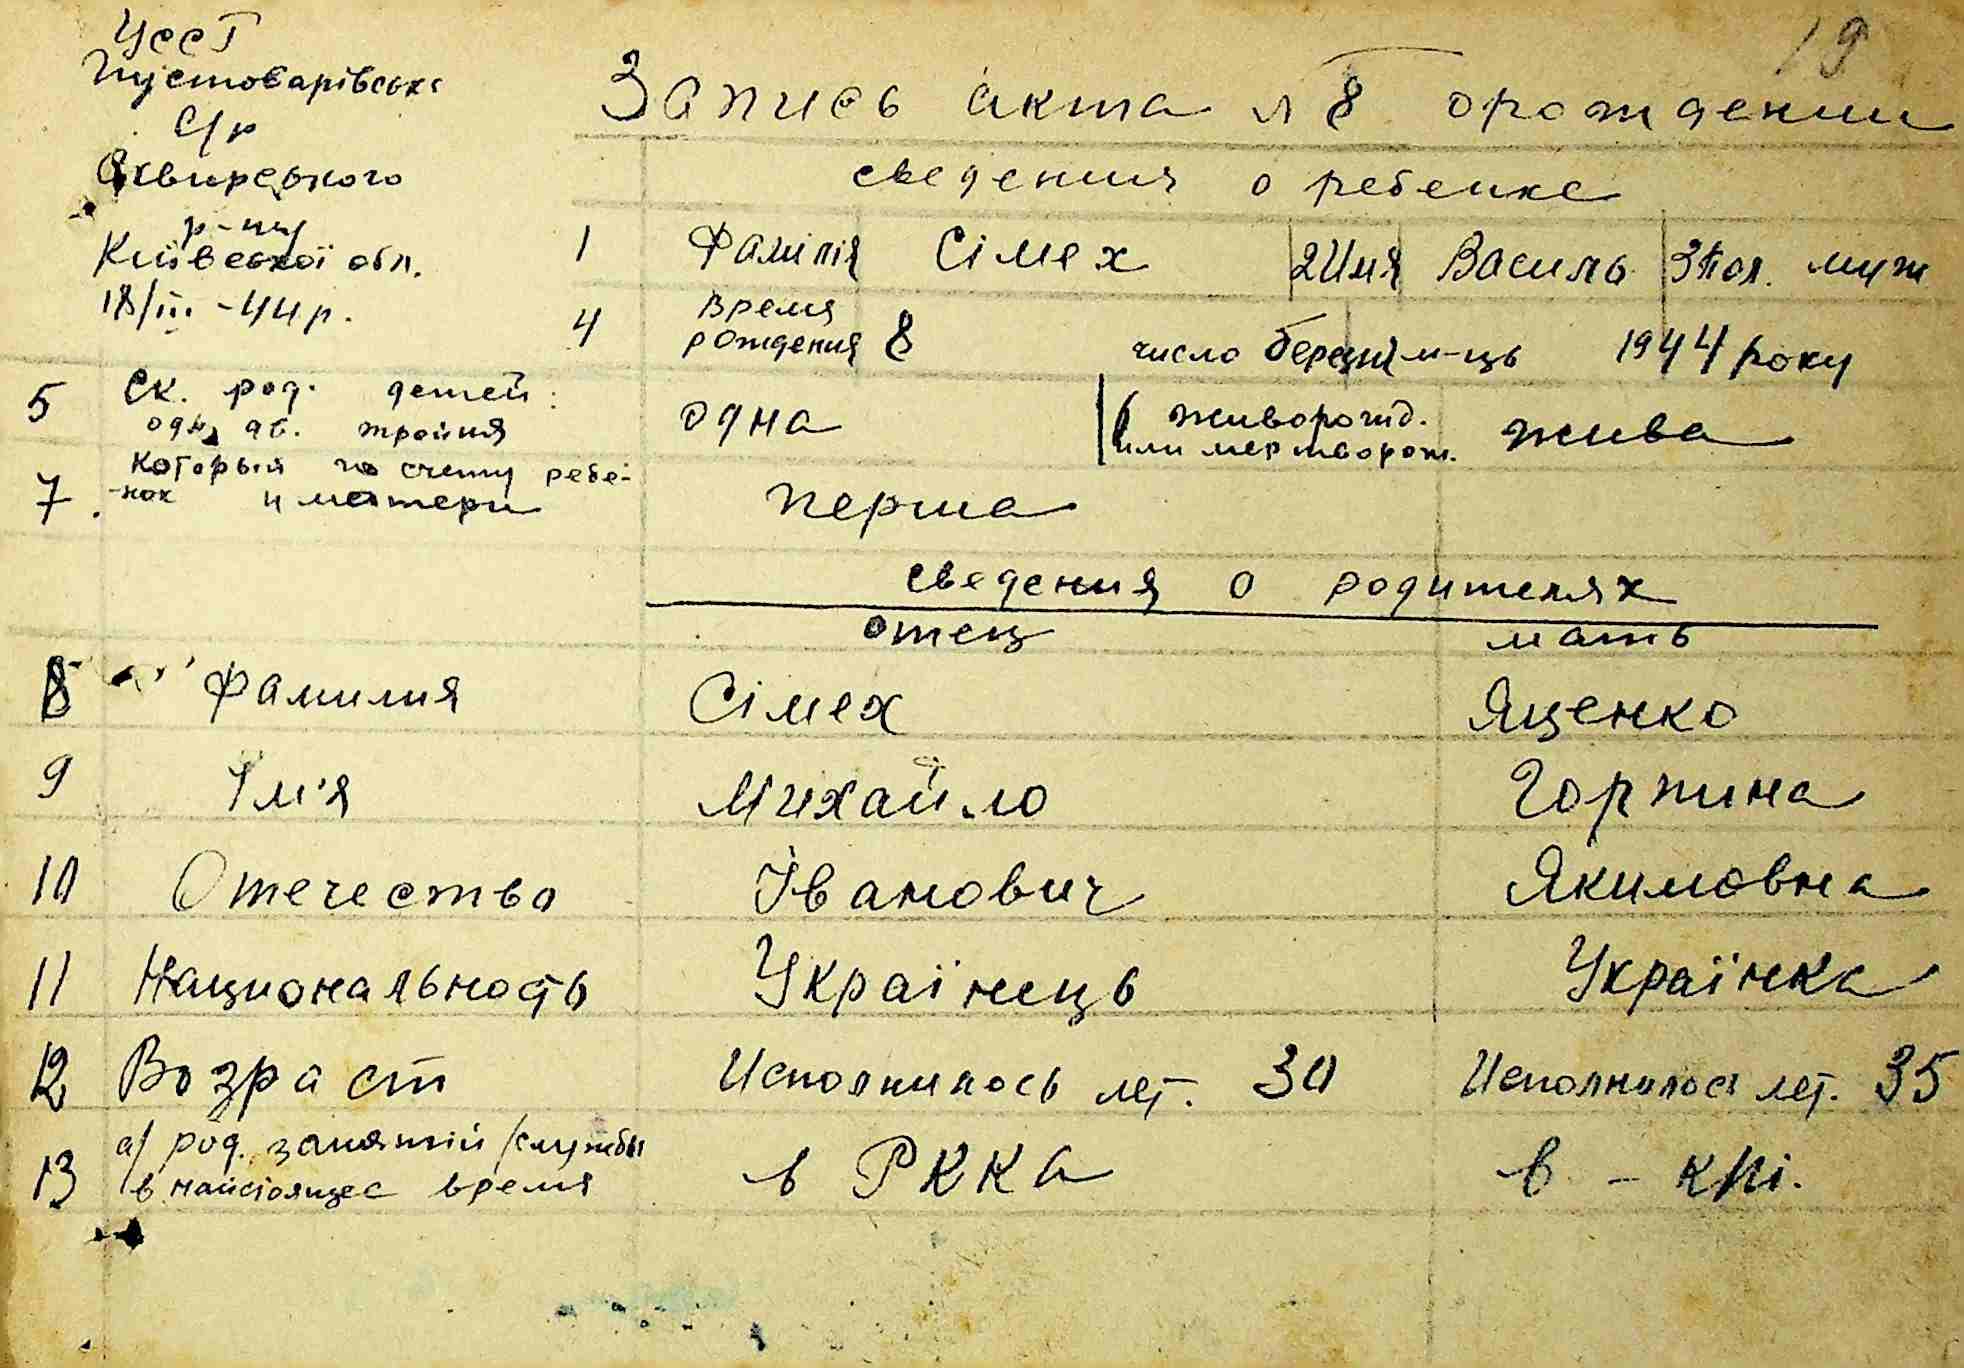 19
УССР
Пустоварівська
с/р
Сквирського
р-ну
Київської обл.
18/III -44р.
Запись акта № 8 о рождении
сведения о ребенке
1 Фамілія Сімех 2 Имя Василь 3 Пол. муж
4 Время рождения 8 число березня м-ць 1944 року
5 Ск. род. детей:
одн, дв. тройня одна 6 живорожд.
или мертворож. жива
7. который по счету ребе-
-нок у матери перша
сведения о родителях
отец мать
8 Фамилия Сімех Яценко
9 Ім'я Михайло Горпина
10 Отечество Іванович Якимовна
11 Национальность Українець Українка
12 Возраст Исполнилось лет. 30 Исполнилось лет. 35
13 а/ род. занятий /службы
в найстоящее время в РККА в - кпі.